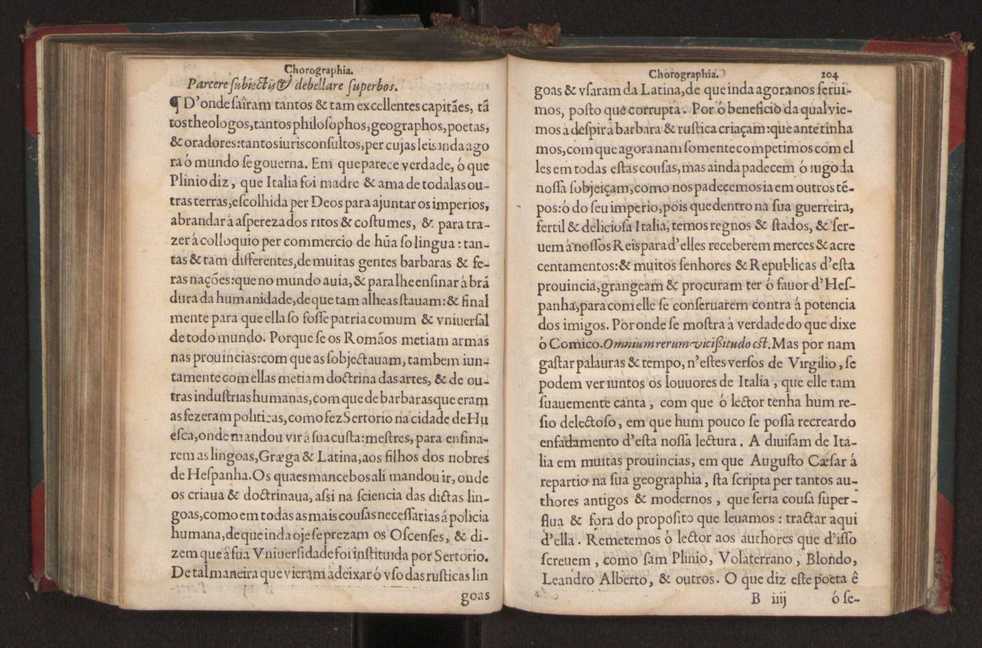 Chorographia.
Parcere subiectis & debellare superbos.
¶ D'onde saîram tantos & tam excellentes capitães, tã
tos theologos, tantos philosophos, geographos, poetas,
& oradores: tantos iurisconsultos, per cujas leis inda ago
ra ó mundo se governa. Em que parece verdade, ó que
Plinio diz, que Italia foi madre & ama de todalas ou-
tras terras, escolhida per Deos para ajuntar os imperios,
abrandar â aspereza dos ritos & costumes, & para tra-
zer â colloquio per commercio de hũa so lingua: tan-
tas & tam differentes, de muitas gentes barbaras & fe-
ras nações: que no mundo auia, & para lhe ensinar â brã
dura da humanidade, de que tam alheas stauam: & final
mente para que ella so fosse patria comum & vniuersal
de todo mundo. Porque se os Romãos metiam armas
nas prouincias: com que as sobjectauam, tambem iun-
tamente com ellas metiam doctrina das artes, & de ou-
tras industrias humanas, com que de barbaras que eram
as fezeram politicas, como fez Sertorio na cidade de Hu
esca, onde mandou vir â sua custa: mestres, para ensina-
rem as lingoas, Græga & Latina, aos filhos dos nobres
de Hespanha. Os quaes mancebos ali mandou ir, onde
os criaua & doctrinaua, assi na sciencia das dictas lin-
goas, como em todas as mais cousas necessarias á policia
humana, de que inda oje se prezam os Oscenses, & di-
zem que â sua Vniuersidade foi instituida por Sertorio.
De tal maneira que vieram â deixar ó vso das rusticas lin
goas
Chorographia. 104
goas & vsaram da Latina, de que inda agora nos serui-
mos, posto que corrupta. Por ó beneficio da qual vie-
mos â despir â barbara & rustica criaçam: que ante tinha
mos, com que agora nam somente competimos com el
les em todas estas cousas, mas ainda padecem ó iugo da
nossa sobjeiçam, como nos padecemos ia em outros tẽ-
pos: ó do seu imperio, pois que dentro na sua guerreira,
fertil & deliciosa Italia, temos regnos & stados, & ser-
uem â nossos Reis para d'elles receberem merces & acre
centamentos: & muitos senhores & Republicas d'esta
prouincia, grangeam & procuram ter ó fauor d'Hes-
panha, para com elle se conseruarem contra á potencia
dos imigos. Por onde se mostra â verdade do que dixe
ó Comico. Omnium rerum vicißitudo est. Mas por nam
gastar palauras & tempo, n'estes versos de Virgilio, se
podem ver iuntos os louuores de Italia, que elle tam
suauemente canta, com que ó lector tenha hum re-
sio delectoso, em que hum pouco se possa recrear do
enfadamento d'esta nossa lectura. A diuisam de Ita-
lia em muitas prouincias, em que Augusto Cæsar á
repartio na sua geographia, sta scripta per tantos au-
thores antigos & modernos, que seria cousa super-
flua & fora do proposito que leuamos: tractar aqui
d'ella. Remetemos ó lector aos authores que d'isso
screuem, como sam Plinio, Volaterrano, Blondo,
Leandro Alberto, & outros. O que diz este poeta ê
B iiij ó se-